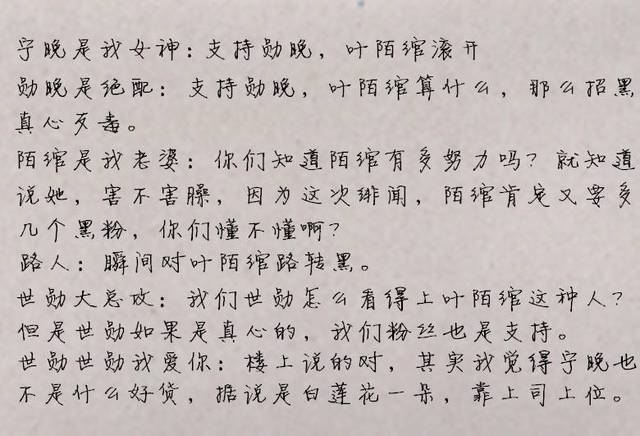 宁晚是我女神：支持勋晚，叶陌绾滚开
勋晚是绝配：支持勋晚，叶陌绾算什么，那么招黑
真心歹毒。
陌绾是我老婆：你们知道陌绾有多努力吗？就知道
说她，害不害臊，因为这次绯闻，陌绾肯定又要多
几个黑粉，你们懂不懂啊？
路人：瞬间对叶陌绾路转黑。
世勋大总攻：我们世勋怎么看得上叶陌绾这种人？
但是世勋如果是真心的，我们粉丝也是支持。
世勋世勋我爱你：楼上说的对，其实我觉得宁晚也
不是什么好货，据说是白莲花一朵，靠上司上位。